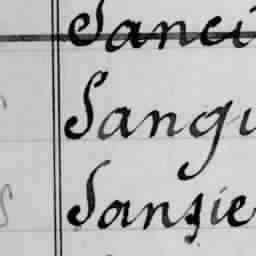 Sanci
Sangu
Sansie